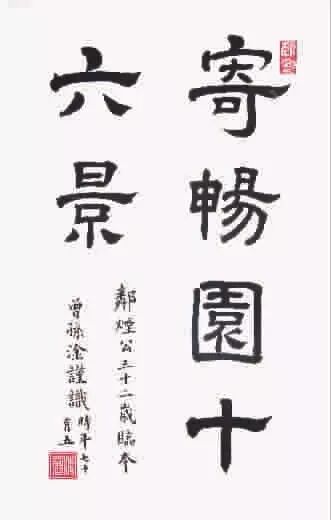 寄暢園十
六景
鄰煙公三十二歲臨奉
曾孫淦謹識時年七十
有五